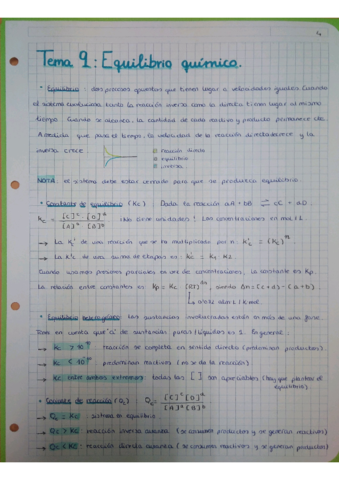 Tema 9: Equilibrio químico.
• Equilibrio: dos procesos opuestos que tienen lugar a velocidades iguales. Cuando
el sistema continuamente tanto la reacción inversa como la directa tienen lugar al mismo
tiempo. Cuando se alcanza, la cantidad de cada reactivo y producto permanece cte.
A medida que pasa el tiempo, la velocidad de la reacción directa decrece y la
inversa crece:
Reacción directa
equilibrio
inversa
NOTA: el sistema debe estar cerrado para que se produzca equilibrio.
• Constante de equilibrio (Kc) Dada la reacción aA + bB ⇌ cC + dD
Kc = [C]^c [D]^d / [A]^a [B]^b ¡No tiene unidades! Las concentraciones en mol/L.
→ La Kc' de una reacción que se ha multiplicado por n: Kc' = (Kc)^n
→ La Kc de una suma de etapas es: Kc = K1 · K2.
Cuando usamos presiones parciales en vez de concentraciones, la constante es Kp.
La relación entre constantes es Kp = Kc [RT]^Δn, siendo Δn = (c+d) - (a+b)
→ 0'082 atm L / K mol.
• Equilibrio heterogéneo: las sustancias involucradas están en más de una fase.
Ten en cuenta que "a" de sustancias puras (líquidas) es 1. En general:
→ Kc > 10^10 reacción se completa en sentido directo (predominan productos).
→ Kc < 10^-10 predominan reactivos (no se da la reacción)
→ Kc entre ambos extremos: todas las [ ] son apreciables (hay que plantear el
equilibrio)
• Cociente de reacción (Qc): Qc = [C]^c [D]^d / [A]^a [B]^b
→ Qc = Kc: sistema en equilibrio
→ Qc > Kc: reacción inversa avanza (se consumen productos y se generan reactivos)
→ Qc < Kc: reacción directa avanza (se consumen reactivos y se generan productos)